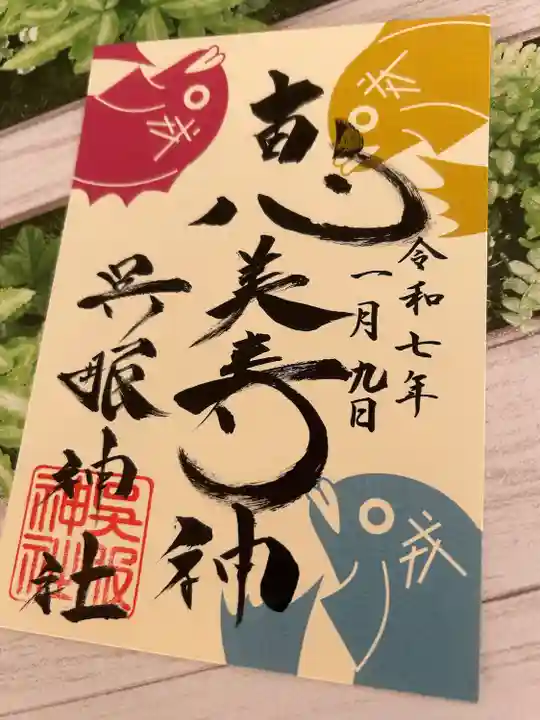 戎
戎
令和七年
一月九日
恵美寿神
呉服神社
呉服
神社
戎